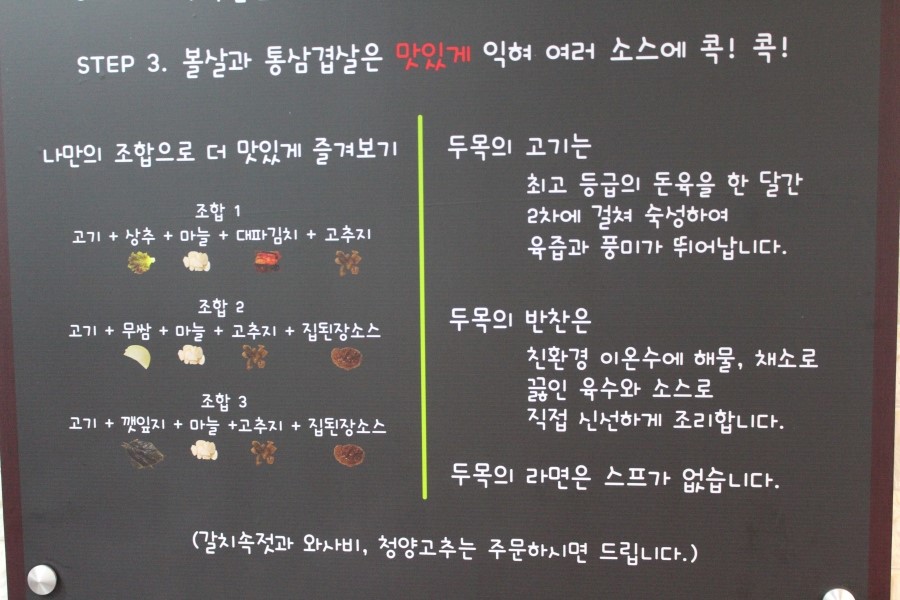 STEP 3. 볼살과 통삼겹살은 맛있게 익혀 여러 소스에 콕! 콕!
나만의 조합으로 더 맛있게 즐겨보기
조합 1
고기 + 상추 + 마늘 + 대파김치 + 고추지
조합 2
고기 + 무쌈 + 마늘 + 고추지 + 집된장소스
조합 3
고기 + 깻잎지 + 마늘 +고추지 + 집된장소스
두목의 고기는
최고 등급의 돈육을 한 달간
2차에 걸쳐 숙성하여
육즙과 풍미가 뛰어납니다.
두목의 반찬은
친환경 이온수에 해물, 채소로
끓인 육수와 소스로
직접 신선하게 조리합니다.
두목의 라면은 스프가 없습니다.
(갈치속젓과 와사비, 청양고추는 주문하시면 드립니다.)